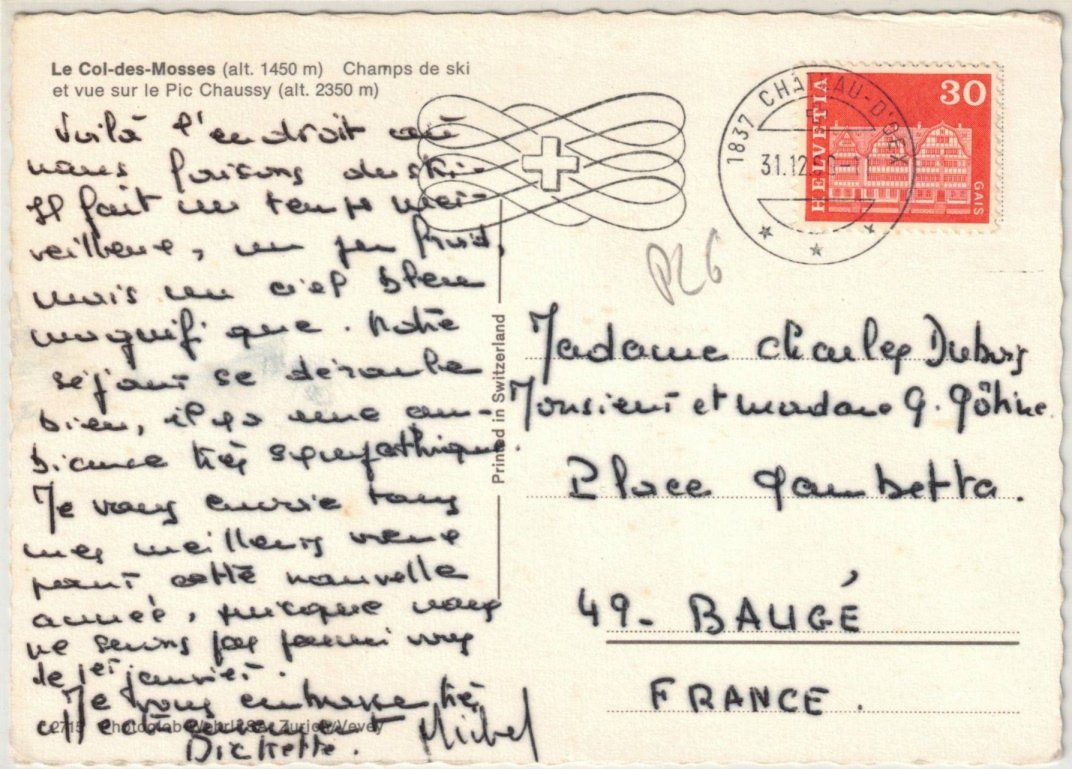 Le Col-des-Mosses (alt. 1450 m) Champs de ski
et vue sur le Pic Chaussy (alt. 2350 m)
Voilà l'endroit où
nous faisons du ski.
Il fait un temps mer-
veilleux, un peu froid,
mais un ciel bleu
magnifique. Notre
séjour se déroule
bien, il y a une am-
biance très sympathique.
Je vous envoie tous
mes meilleurs vœux
pour cette nouvelle
année, puisque nous
ne serons pas parmi vous
le 1er janvier.
Je vous embrasse très
affectueusement
Dickette. Michel
2715 Photoglob-Wehrli SA, Zurich/Vevey
Printed in Switzerland
1837 CHÂTEAU-D'OEX
31.12
HELVETIA
30
GAIS
Madame Charles Dubois
Monsieur et madame G.
Place Gambetta.
49 - BAUGÉ
FRANCE.